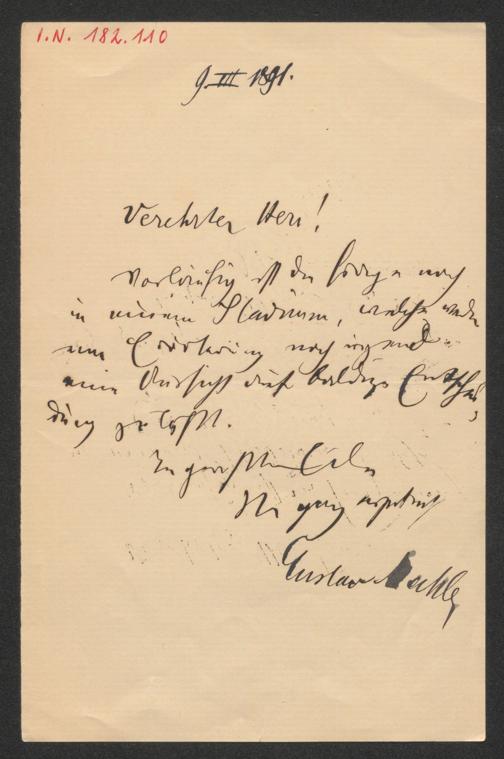 I.N. 182.110
9. III 1891.
Verehrter Herr!
Vorläufig ist die Frage noch
in einem Stadium, welche weder
eine Erörterung noch irgend
eine Aussicht auf baldige Entschei-
dung zuläßt.
In größter Eile
Ihr ganz ergebenst
Gustav Mahler